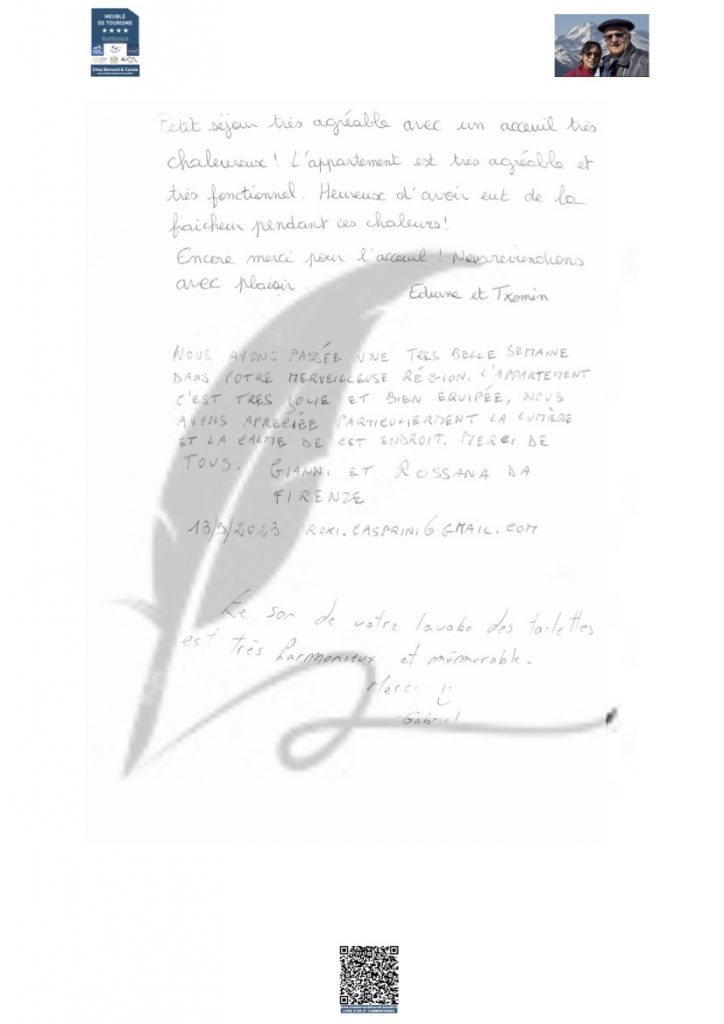 MEUBLÉ
DE TOURISME
★★★★
Chez Bernard & Carole
Petit séjour très agréable avec un acceuil très
chaleureux! L'appartement est très agréable et
très fonctionnel. Heureux d'avoir eut de la
fraicheur pendant ces chaleurs!
Encore merci pour l'acceuil! Nous reviendrions
avec plaisir.
Edurne et Txomin
NOUS AVONS PASSÉE UNE TRES BELLE SEMAINE
DANS VOTRE MERVEILLEUSE RÉGION. L'APPARTEMENT
C'EST TRES JOLIE ET BIEN EQUIPÉE, NOUS
AVONS APRECIÉE PARTICULIERMENT LA LUMIÈRE
ET LA CALME DE CET ENDROIT. MERCI DE
TOUS. GIANNI ET ROSSANA DA
FIRENZE
13/9/2023 ROXI.CASPRINI@GMAIL.COM
Le son de votre lavabo des toilettes
est très harmonieux et mémorable.
Merci
-Gabriel
LIVRE D'OR ET COMMENTAIRES